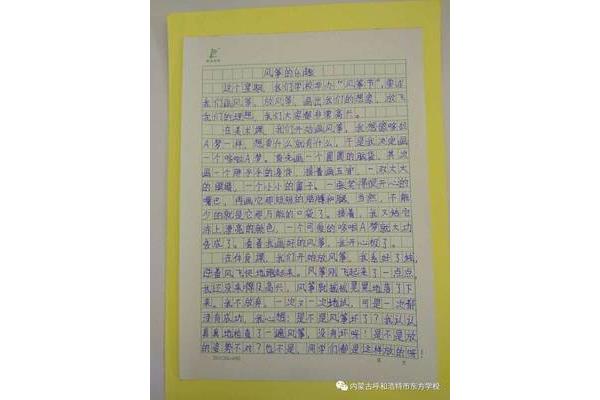 风筝的乐趣
这个星期,我们学校举办“风筝节”,要求
我们画风筝,放风筝,画出我们的想象,放飞
我们的理想,我们大家都非常高兴。
在美术课,我们开始画风筝,我想像哆啦
A梦一样,想要什么就有什么。于是我决定画
一个哆啦A梦。首先画一个圆圆的脑袋,其次
画一个胖乎乎的身体,接着画五官,一双大大
的眼睛,一个小小的鼻子,一张笑得很开心的
嘴巴,再画它那短短的胳膊和腿,当然,不能
少的就是它那万能的口袋了。接着,我又给它
涂上漂亮的颜色,一个可爱的哆啦A梦就大功
告成了。看着我画好的风筝,我开心极了。
在体育课,我们开始放风筝,我系好了线,
迎着风飞快地跑起来。风筝刚飞起来了一点点,
我还没来得及高兴,风筝就摇摇晃晃地落了下
来。我不放弃,一次又一次地试,可是一次都
没有成功,我心想:是不是风筝坏了?我认认
真真地检查了一遍风筝,没有坏呀!是不是放
的姿势不对?也不是,同学们都是这样放的呀
内蒙古呼和浩特市东方学校